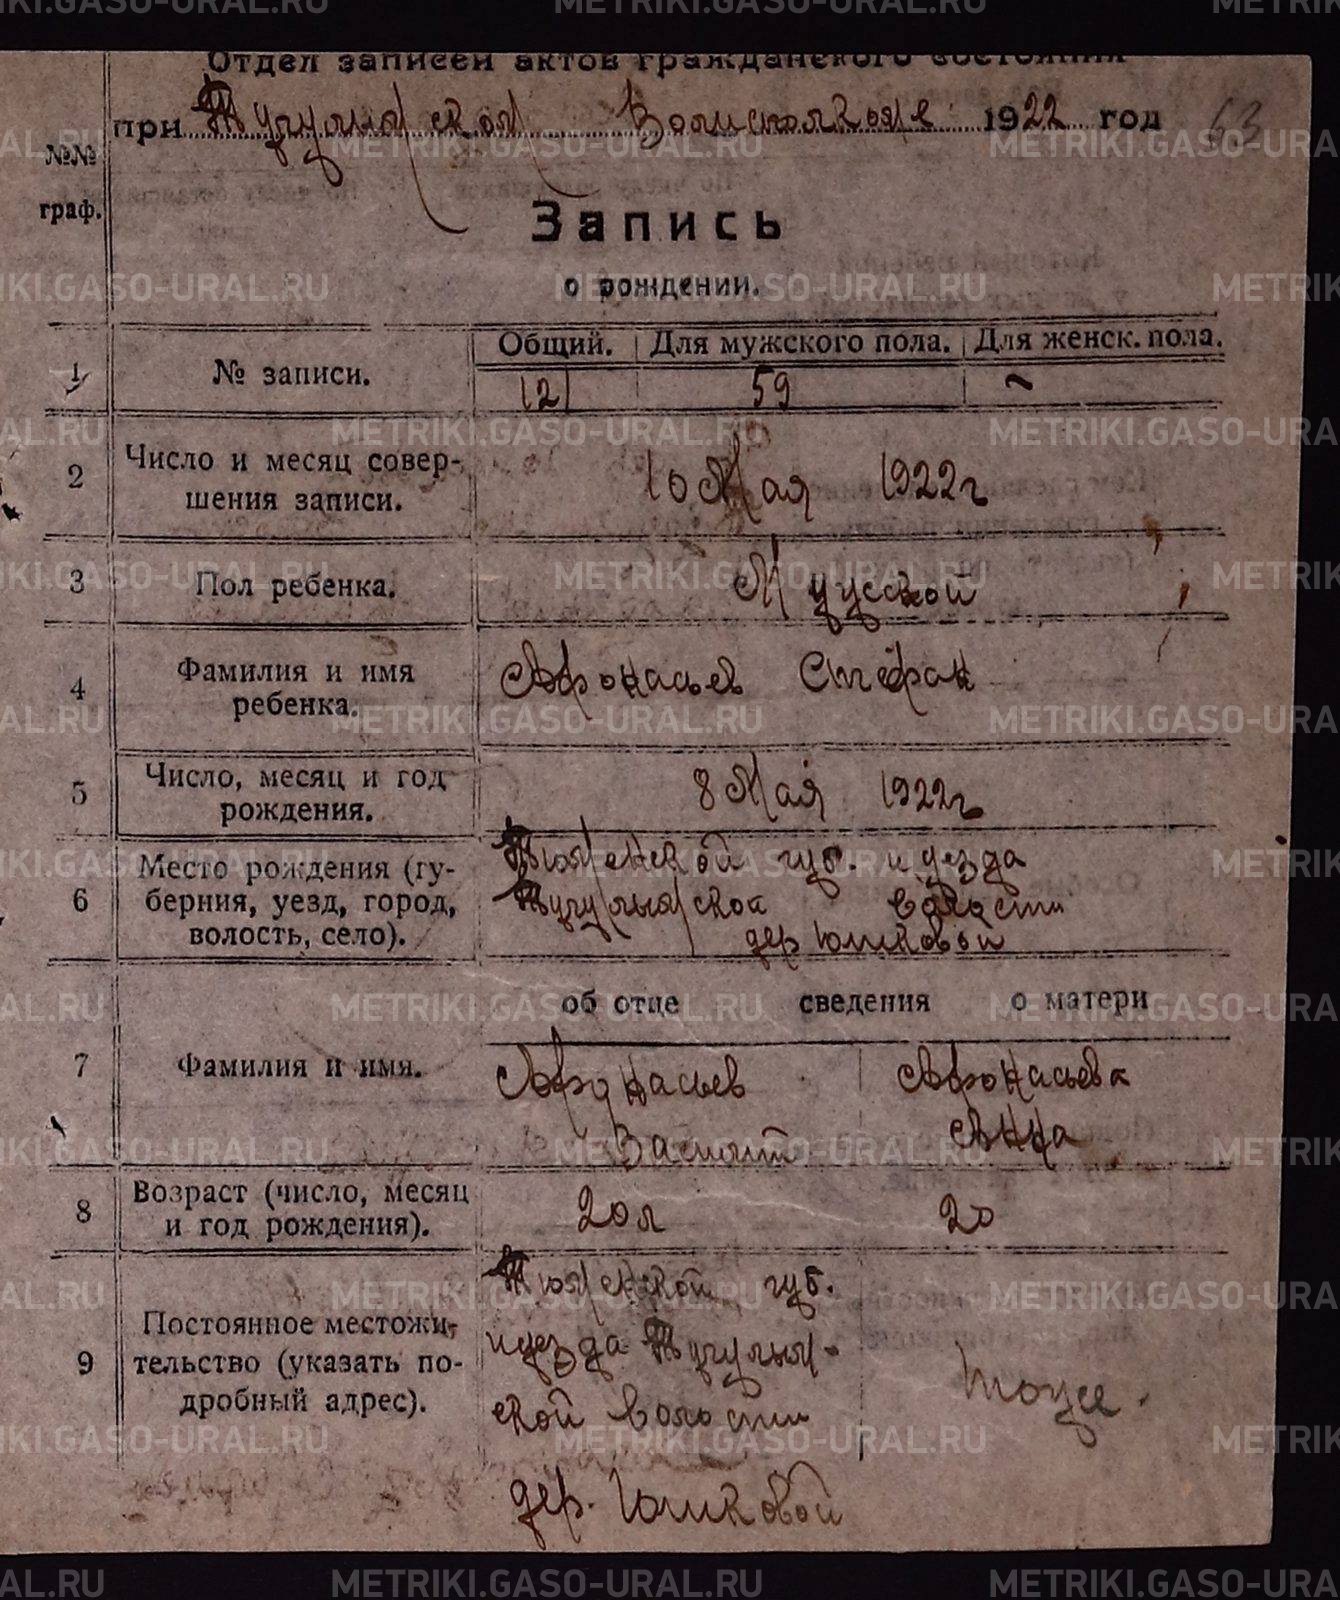 Отдел записей актов гражданского состояния
при Тугулымской Волисполкоме 1922 год 63
№№ граф.
Запись
о рождении.
Общий. Для мужского пола. Для женск. пола.
1 № записи. 121 59 ~
2 Число и месяц совер-
шения записи. 10 Мая 1922 г
3 Пол ребенка. Мужской
4 Фамилия и имя
ребенка. Афонасьев Стефан
5 Число, месяц и год
рождения. 8 Мая 1922 г.
6 Место рождения (гу-
берния, уезд, город,
волость, село).
Тюменской губ. и уезда
Тугулымской волости
дер Юшковой
об отце сведения о матери
7 Фамилия и имя. Афонасьев Афонасьева
Анна
8 Возраст (число, месяц
и год рождения). 20 л 20
9 Постоянное местожи-
тельство (указать по-
дробный адрес).
Тюменской губ.
и уезда Тугулым-
ской волости
дер. Юшковой
тоже.
METRIKI.GASO-URAL.RU